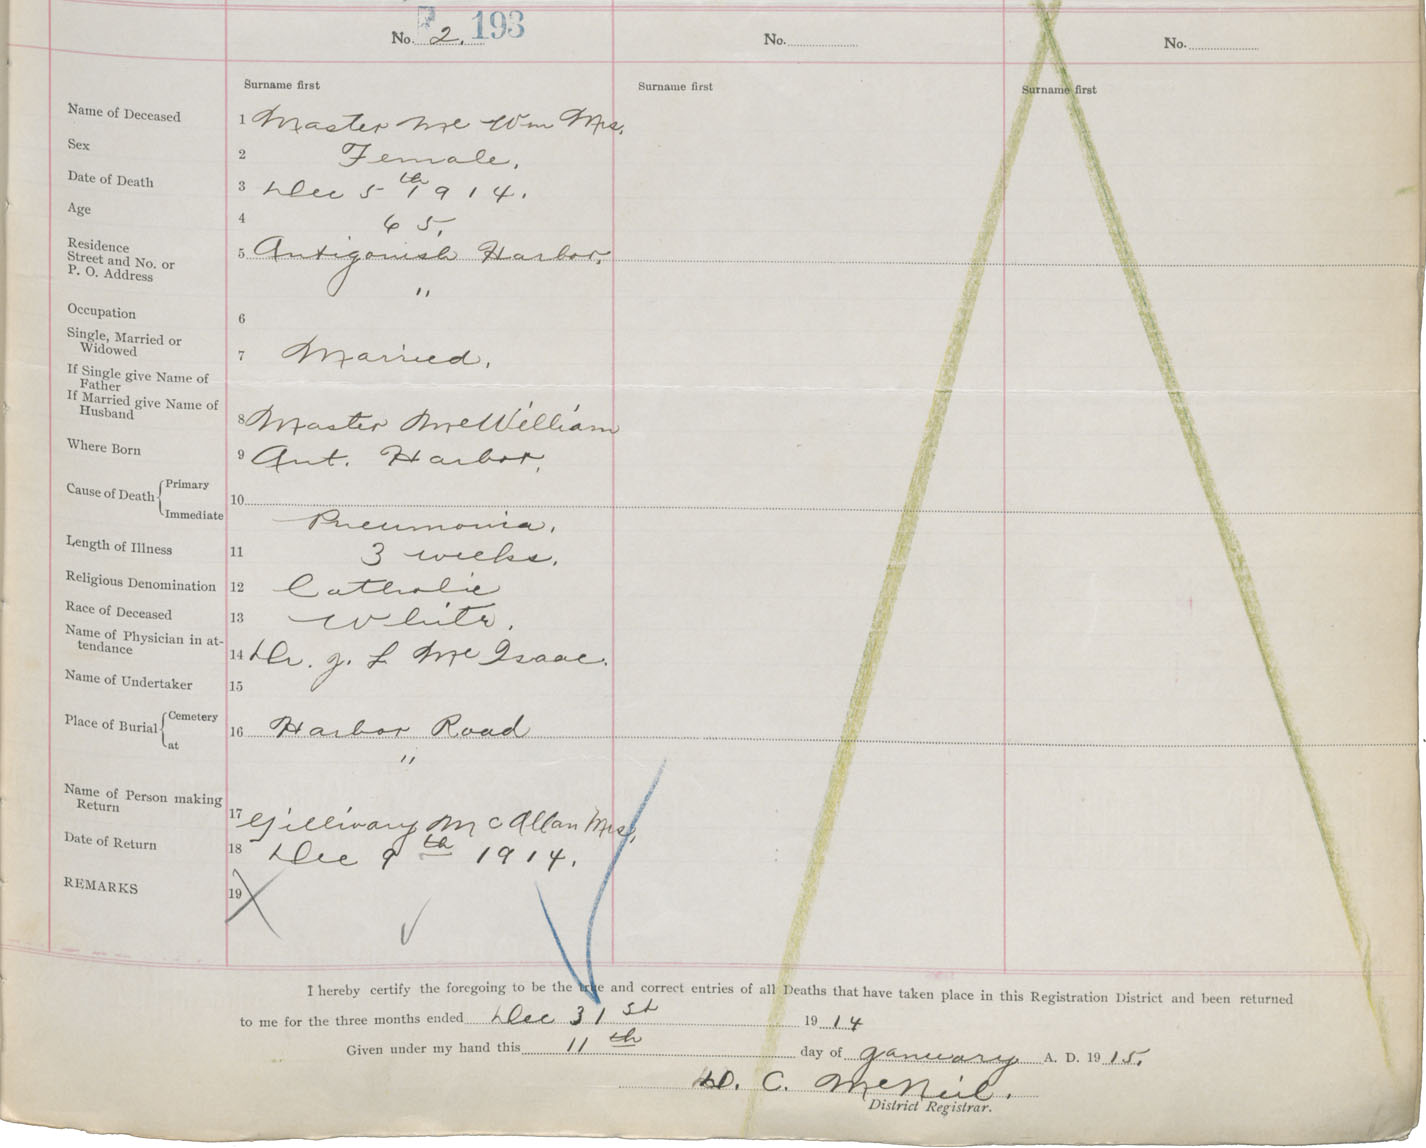 No. 2. 193
No.
No.
Surname first
Surname first
Surname first
Name of Deceased 1 Master Mc Wm Mrs.
Sex 2 Female.
Date of Death 3 Dec 5th 1914.
Age 4 65.
Residence
Street and No. or 5 Antigonish Harbor.
P. O. Address "
Occupation 6
Single, Married or
Widowed 7 Married.
If Single give Name of
Father
If Married give Name of
Husband 8 Master McWilliam
Where Born 9 Ant. Harbor.
Cause of Death Primary 10
Immediate Pneumonia.
Length of Illness 11 3 weeks.
Religious Denomination 12 Catholic
Race of Deceased 13 White.
Name of Physician in at-
tendance 14 Dr. J. L McIsaac.
Name of Undertaker 15
Place of Burial Cemetery 16 Harbor Road
at "
Name of Person making
Return 17 Gillivary Mc Allan Mrs.
Date of Return 18 Dec 9th 1914.
REMARKS 19
I hereby certify the foregoing to be the true and correct entries of all Deaths that have taken place in this Registration District and been returned
to me for the three months ended Dec 31st 1914
Given under my hand this 11th day of January A. D. 1915.
D. C. McNeil.
District Registrar.